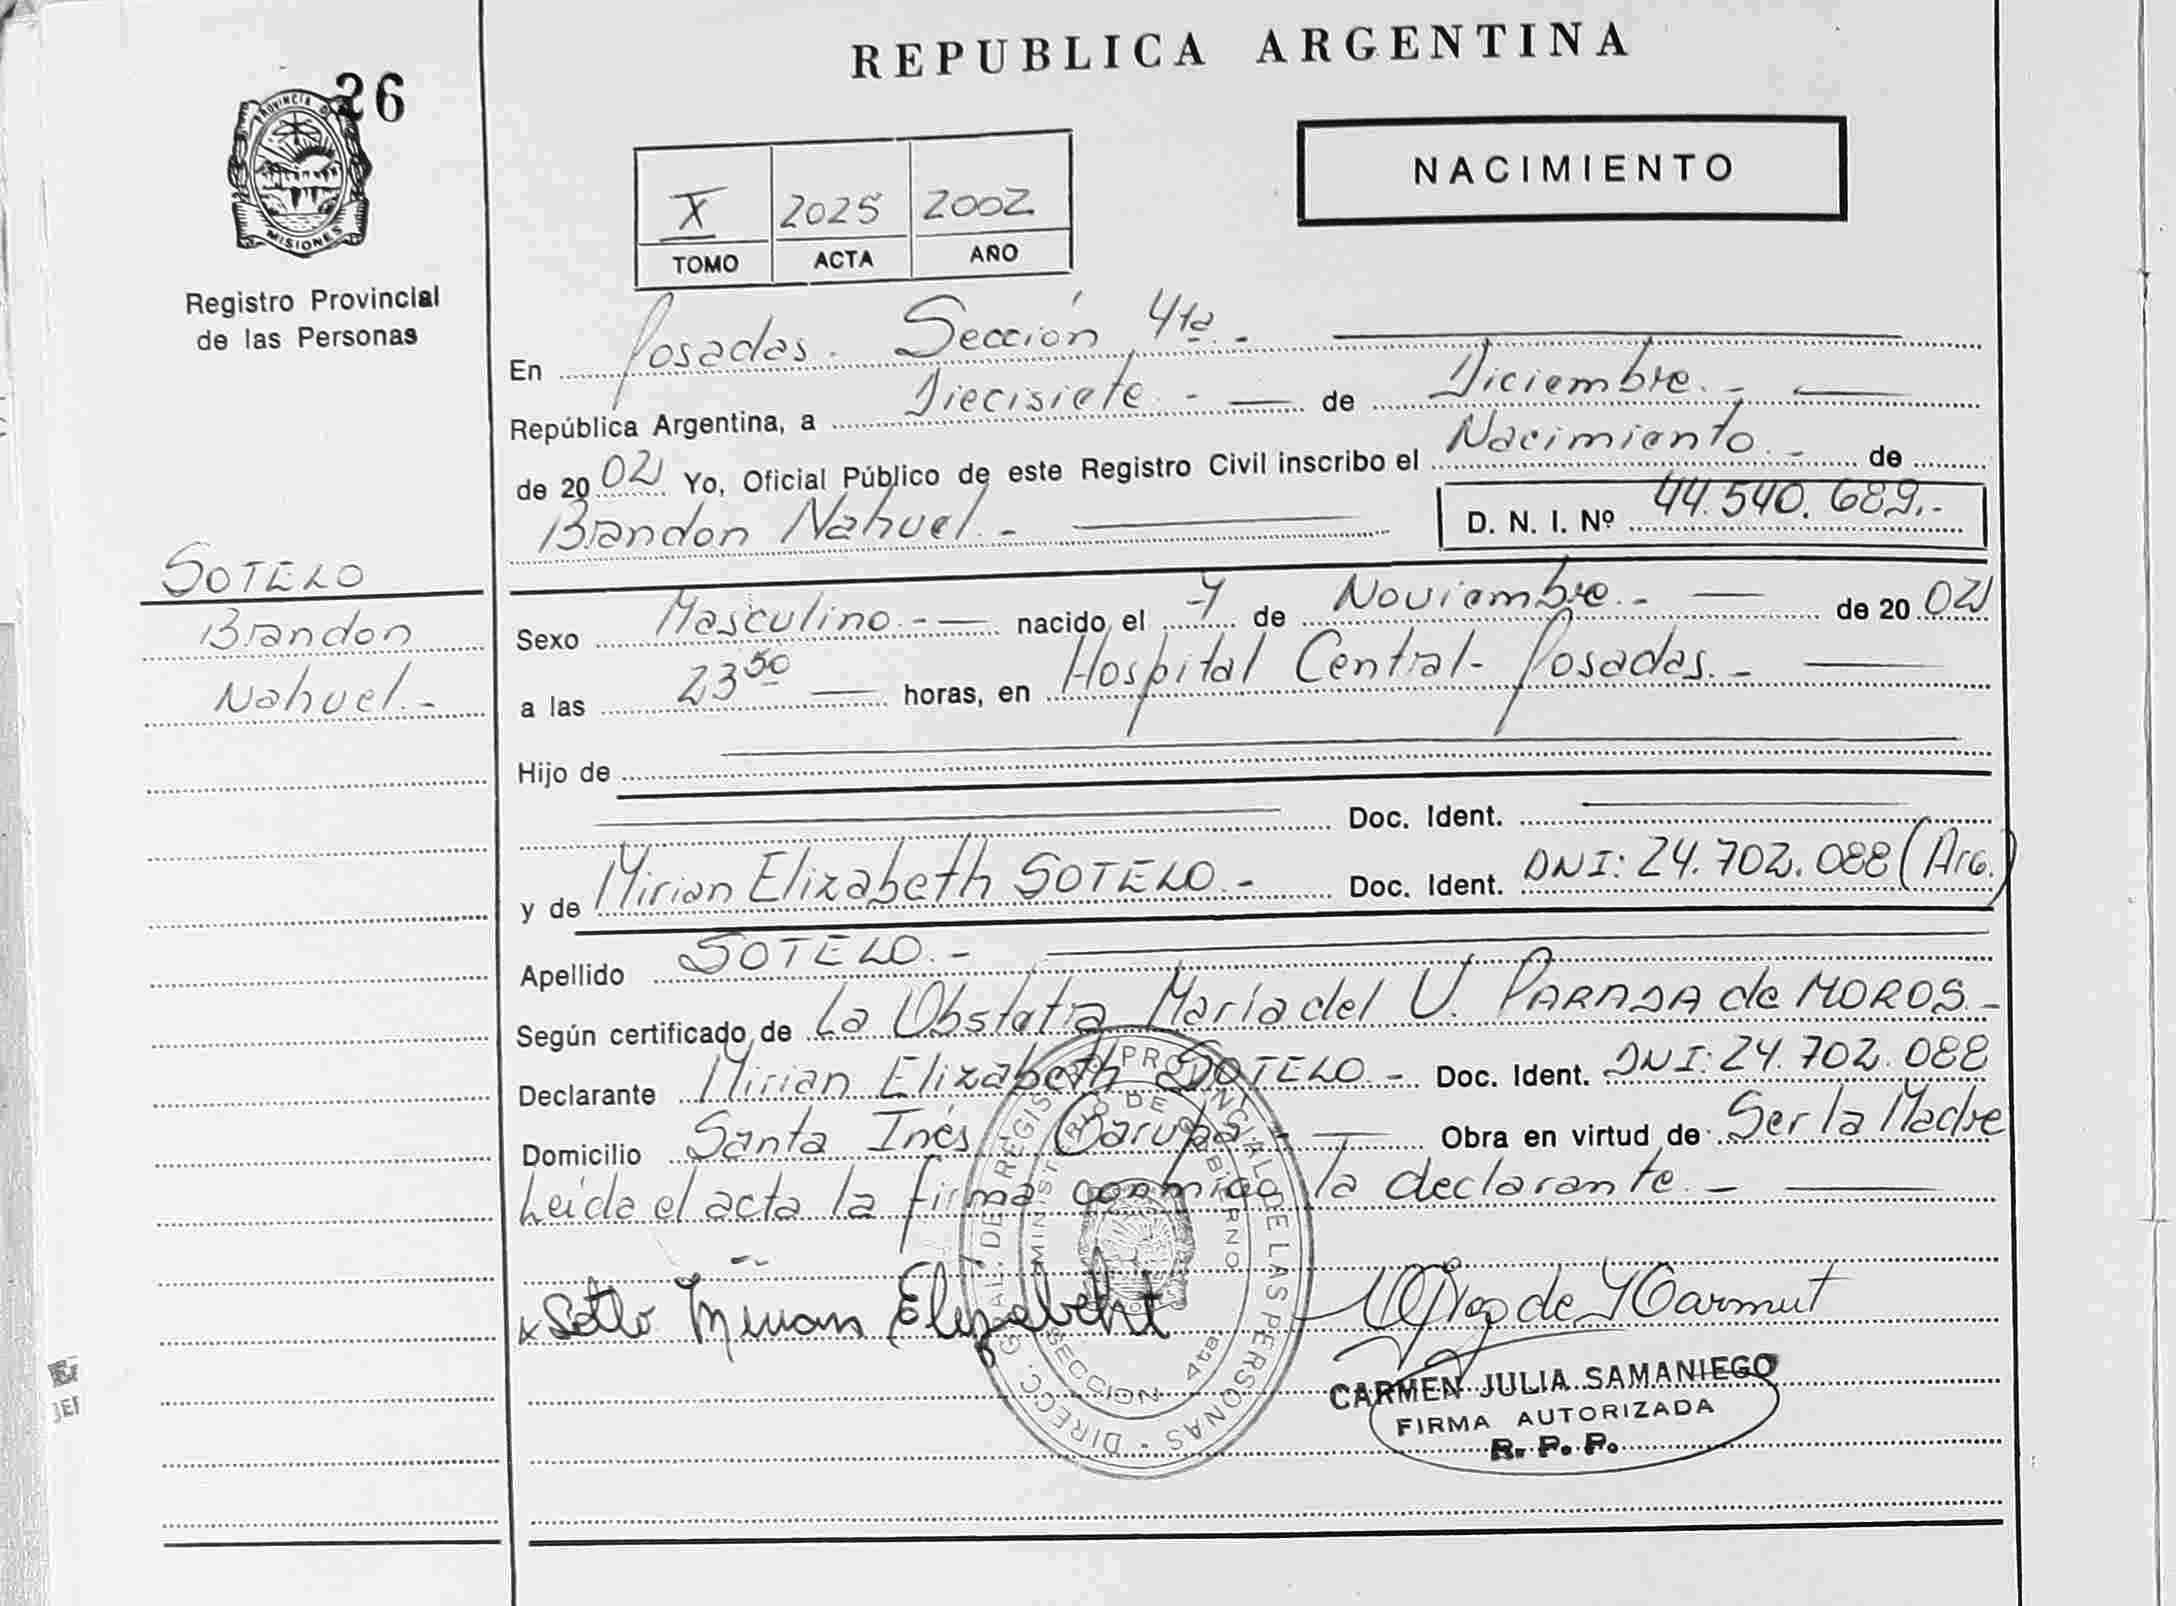 REPUBLICA ARGENTINA
26
PROVINCIA D
MISIONES
Registro Provincial
de las Personas
NACIMIENTO
X 2025 2002
TOMO ACTA AÑO
En Posadas. Sección 4ta.-
República Argentina, a Diecisiete.- de Diciembre.-
de 20 02 Yo, Oficial Público de este Registro Civil inscribo el Nacimiento.- de
Brandon Nahuel.- D. N. I. Nº 44.540.689.-
SOTELO
Brandon
Nahuel.-
Sexo Masculino.- nacido el 7 de Noviembre.- de 20 02
a las 23 50 horas, en Hospital Central- Posadas.-
Hijo de
Doc. Ident.
y de Mirian Elizabeth SOTELO.- Doc. Ident. DNI: 24.702.088 (Arg.)
Apellido SOTELO.-
Según certificado de La Obstetra María del V. PARADA de MOROS.-
Declarante Mirian Elizabeth SOTELO.- Doc. Ident. DNI: 24.702.088
Domicilio Santa Inés Garupá.- Obra en virtud de Ser la Madre
Leída el acta la firma conmigo la declarante.-
x Sotelo Mirian Elizabeht
DIRECC. GRAL. DE REGISTRO PROVINCIAL DE LAS PERSONAS -
MINISTERIO DE GOBIERNO
SECCION 4ta
CARMEN JULIA SAMANIEGO
FIRMA AUTORIZADA
R. P. P.